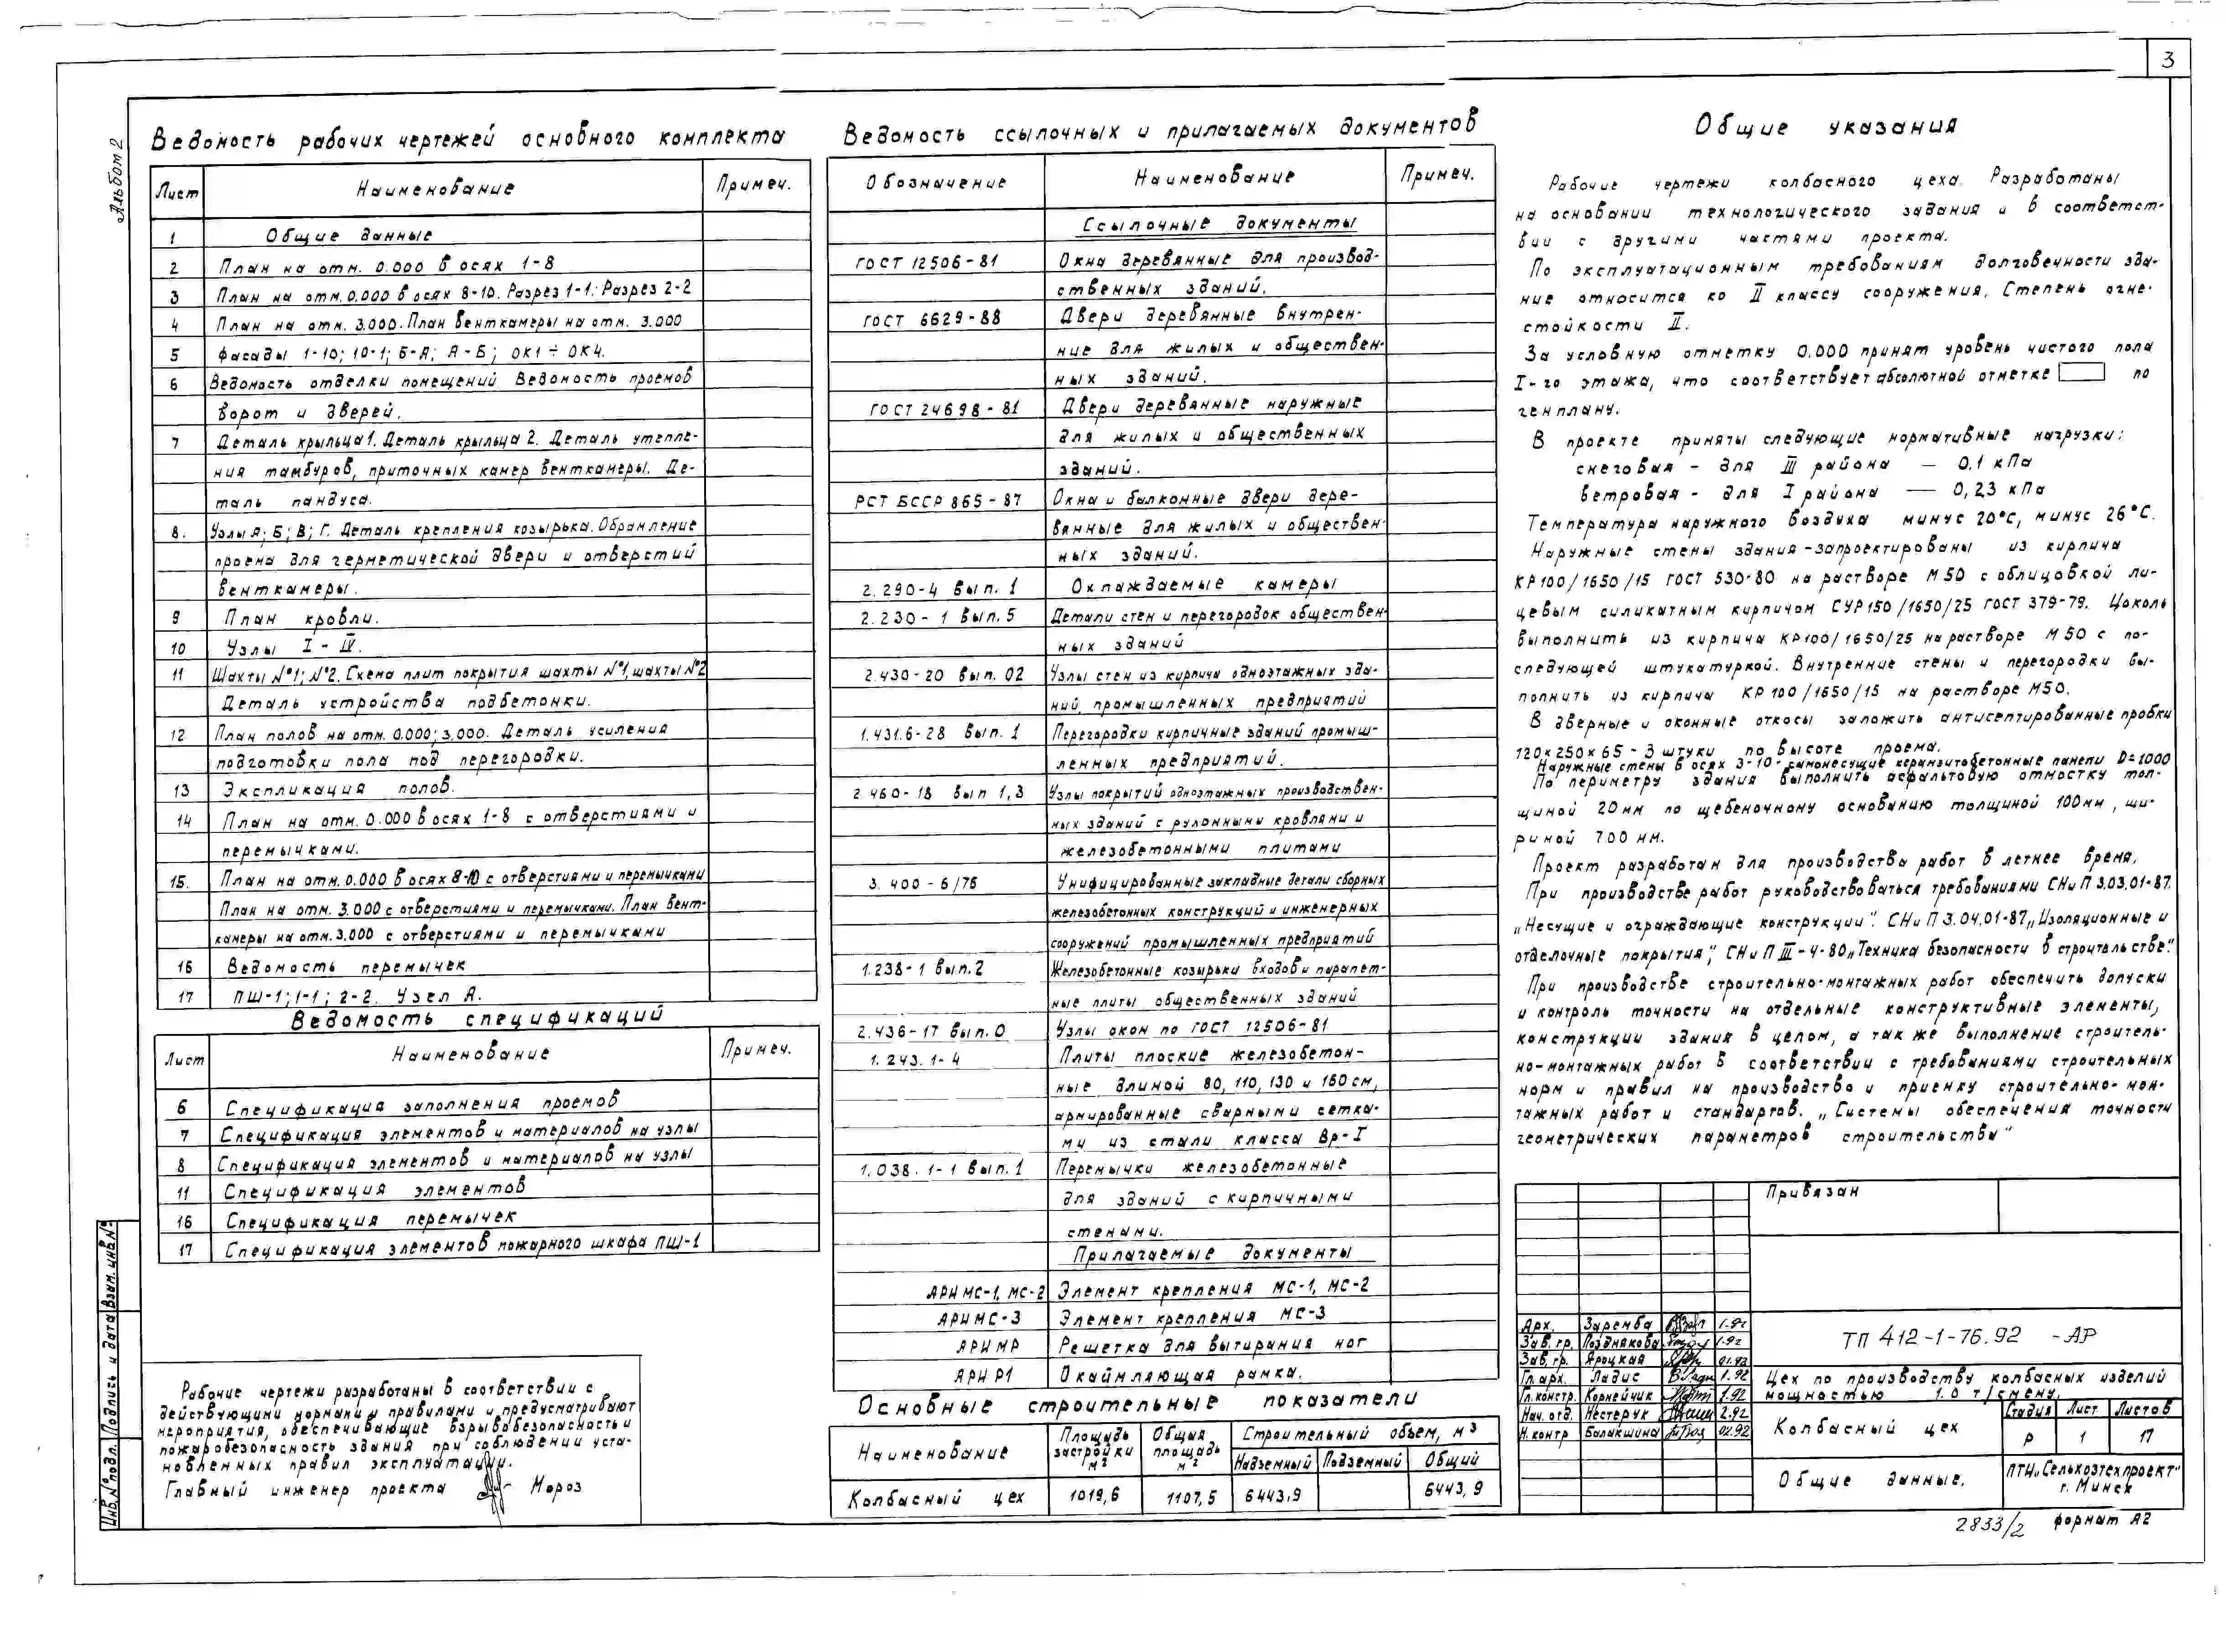 3
Альбом 2
Ведомость рабочих чертежей основного комплекта
Лист Наименование Примеч.
1 Общие данные
2 План на отм. 0.000 в осях 1-8
3 План на отм. 0.000 в осях 8-10. Разрез 1-1. Разрез 2-2
4 План на отм. 3.000. План венткамеры на отм. 3.000
5 Фасады 1-10; 10-1; Б-А; А-Б; ОК1 ÷ ОК4.
6 Ведомость отделки помещений Ведомость проемов
ворот и дверей.
7 Деталь крыльца 1. Деталь крыльца 2. Деталь утепле-
ния тамбуров, приточных камер венткамеры. Де-
таль пандуса.
8. Узлы А; Б; В; Г. Деталь крепления козырька. Обрамление
проема для герметической двери и отверстий
венткамеры.
9 План кровли.
10 Узлы I - IV.
11 Шахты №1; №2. Схема плит покрытия шахты №1, шахты №2
Деталь устройства подбетонки.
12 План полов на отм. 0.000; 3.000. Деталь усиления
подготовки пола под перегородки.
13 Экспликация полов.
14 План на отм. 0.000 в осях 1-8 с отверстиями и
перемычками.
15. План на отм. 0.000 в осях 8-10 с отверстиями и перемычками
План на отм. 3.000 с отверстиями и перемычками. План вент-
камеры на отм. 3.000 с отверстиями и перемычками
16 Ведомость перемычек
17 ПШ-1; 1-1; 2-2. Узел А.
Ведомость спецификаций
Лист Наименование Примеч.
6 Спецификация заполнения проемов
7 Спецификация элементов и материалов на узлы
8 Спецификация элементов и материалов на узлы
11 Спецификация элементов
16 Спецификация перемычек
17 Спецификация элементов пожарного шкафа ПШ-1
Рабочие чертежи разработаны в соответствии с
действующими нормами и правилами и предусматривают
мероприятия, обеспечивающие взрывобезопасность и
пожаробезопасность здания при соблюдении уста-
новленных правил эксплуатации.
Главный инженер проекта Мороз
Инв. № подл. Подпись и дата Взам. инв. №
Ведомость ссылочных и прилагаемых документов
Обозначение Наименование Примеч.
Ссылочные документы
ГОСТ 12506-81 Окна деревянные для производ-
ственных зданий.
ГОСТ 6629-88 Двери деревянные внутрен-
ние для жилых и обществен-
ных зданий.
ГОСТ 24698-81 Двери деревянные наружные
для жилых и общественных
зданий.
РСТ БССР 865-87 Окна и балконные двери дере-
вянные для жилых и обществен-
ных зданий.
2.290-4 вып. 1 Охлаждаемые камеры
2.230-1 вып. 5 Детали стен и перегородок обществен-
ных зданий
2.430-20 вып. 02 Узлы стен из кирпича одноэтажных зда-
ний, промышленных предприятий
1.431.6-28 вып. 1 Перегородки кирпичные зданий промыш-
ленных предприятий.
2.460-18 вып 1,3 Узлы покрытий одноэтажных производствен-
ных зданий с рулонными кровлями и
железобетонными плитами
3.400-6/76 Унифицированные закладные детали сборных
железобетонных конструкций и инженерных
сооружений промышленных предприятий
1.238-1 вып. 2 Железобетонные козырьки входов и парапет-
ные плиты общественных зданий
2.436-17 вып. 0 Узлы окон по ГОСТ 12506-81
1.243.1-4 Плиты плоские железобетон-
ные длиной 80, 110, 130 и 160 см,
армированные сварными сетка-
ми из стали класса Вр-I
1.038.1-1 вып. 1 Перемычки железобетонные
для зданий с кирпичными
стенами.
Прилагаемые документы
АРИ МС-1, МС-2 Элемент крепления МС-1, МС-2
АРИ МС-3 Элемент крепления МС-3
АРИ МР Решетка для вытирания ног
АРИ Р1 Окаймляющая рамка.
Основные строительные показатели
Наименование Площадь застройки м² Общая площадь м² Строительный объем, м³
Надземный Подземный Общий
Колбасный цех 1019,6 1107,5 6443,9 6443,9
Общие указания
Рабочие чертежи колбасного цеха. Разработаны
на основании технологического задания и в соответст-
вии с другими частями проекта.
По эксплуатационным требованиям долговечности зда-
ние относится ко II классу сооружения, Степень огне-
стойкости II.
За условную отметку 0.000 принят уровень чистого пола
I-го этажа, что соответствует абсолютной отметке по
генплану.
В проекте приняты следующие нормативные нагрузки:
снеговая - для III района — 0.1 кПа
ветровая - для I района — 0,23 кПа
Температура наружного воздуха минус 20°С, минус 26°С.
Наружные стены здания - запроектированы из кирпича
КР100/1650/15 ГОСТ 530-80 на растворе М50 с облицовкой ли-
цевым силикатным кирпичом СУР150/1650/25 ГОСТ 379-79. Цоколь
выполнить из кирпича КР100/1650/25 на растворе М50 с по-
следующей штукатуркой. Внутренние стены и перегородки вы-
полнить из кирпича КР100/1650/15 на растворе М50.
В дверные и оконные откосы заложить антисептированные пробки
120×250×65 - 3 штуки по высоте проема.
Наружные стены в осях 3-10 - самонесущие керамзитобетонные панели D=1000
По периметру здания выполнить асфальтовую отмостку тол-
щиной 20мм по щебеночному основанию толщиной 100мм, ши-
риной 700 мм.
Проект разработан для производства работ в летнее время.
При производстве работ руководствоваться требованиями СНиП 3.03.01-87.
„Несущие и ограждающие конструкции". СНиП 3.04.01-87„Изоляционные и
отделочные покрытия", СНиП III-4-80„Техника безопасности в строительстве".
При производстве строительно-монтажных работ обеспечить допуски
и контроль точности на отдельные конструктивные элементы,
конструкции здания в целом, а так же выполнение строитель-
но-монтажных работ в соответствии с требованиями строительных
норм и правил на производство и приемку строительно-мон-
тажных работ и стандартов. „Системы обеспечения точности
геометрических параметров строительства"
Привязан
Арх. Заремба 1.92
Зав. гр. Позднякова 1.92
Зав. гр. Яроцкая 01.92
Гл. арх. Ладис 1.92
Гл. констр. Корнейчик 1.92
Нач. отд. Нестерук 2.92
Н. контр Балакшина 02.92
ТП 412-1-76.92 -АР
Цех по производству колбасных изделий
мощностью 1.0 т/смену.
Колбасный цех
Стадия Лист Листов
Р 1 17
Общие данные.
ПТИ„Сельхозтехпроект"
г. Минск
2833/2 формат А2